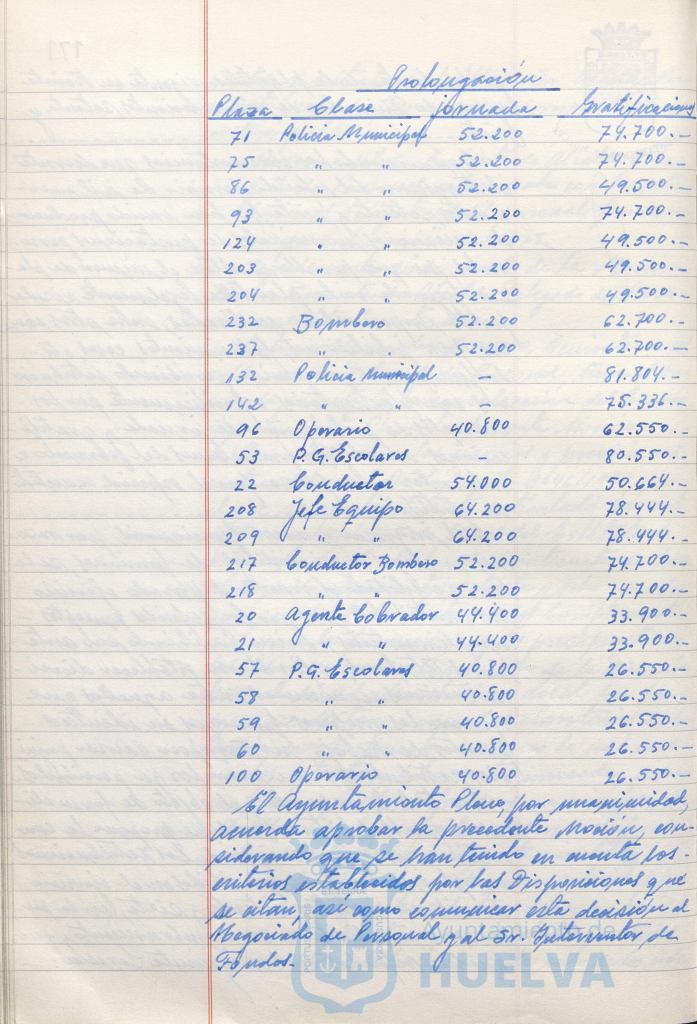 Prolongación
Plaza Clase jornada Gratificaciones
71 Policia Municipal 52.200 74.700.-
75 " " 52.200 74.700.-
86 " " 52.200 49.500.-
93 " " 52.200 74.700.-
124 " " 52.200 49.500.-
203 " " 52.200 49.500.-
204 " " 52.200 49.500.-
232 Bombero 52.200 62.700.-
237 " " 52.200 62.700.-
132 Policia Municipal - 81.804.-
142 " " - 75.336.-
96 Operario 40.800 62.550.-
53 P.G. Escolares - 80.550.-
22 Conductor 54.000 50.664.-
208 Jefe Equipo 64.200 78.444.-
209 " " 64.200 78.444.-
217 Conductor Bombero 52.200 74.700.-
218 " " 52.200 74.700.-
20 Agente Cobrador 44.400 33.900.-
21 " " 44.400 33.900.-
57 P.G. Escolares 40.800 26.550.-
58 " " 40.800 26.550.-
59 " " 40.800 26.550.-
60 " " 40.800 26.550.-
100 Operario 40.800 26.550.-
El Ayuntamiento Pleno, por unanimidad,
acuerda aprobar la precedente Moción, con-
siderando que se han tenido en cuenta los
criterios establecidos por las Disposiciones que
se citan, así como comunicar esta decisión al
Negociado de Personal y al Sr. Interventor de
Fondos.-
Ayuntamiento de
HUELVA